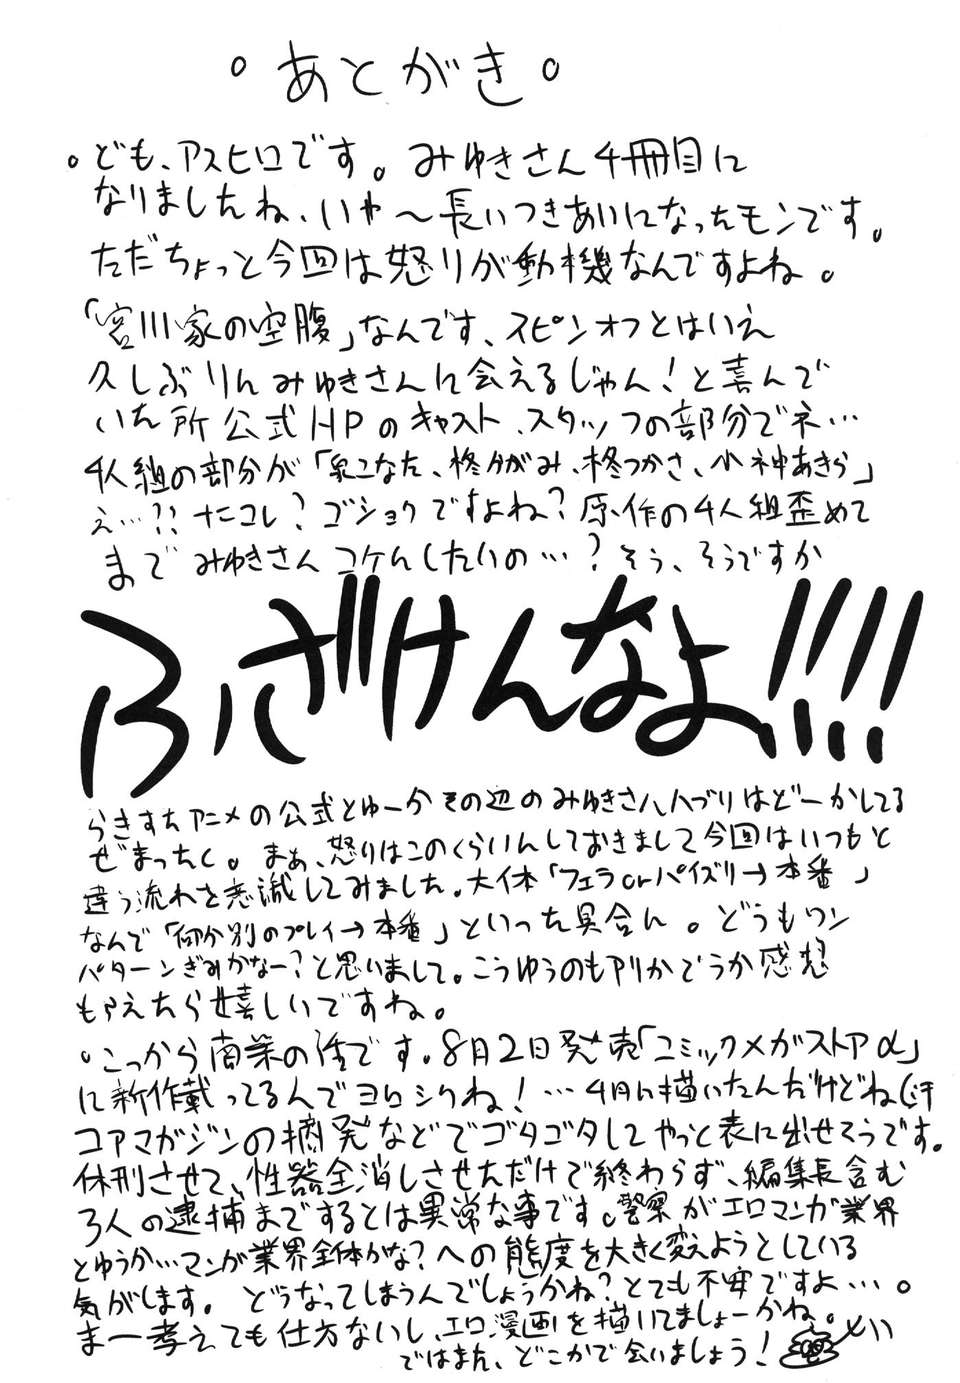 あとがき
。ども、アスヒロです。みゆきさん4冊目に
なりましたね、いや〜長いつきあいになったモンです。
ただちょっと今回は怒りが動機なんですよね。
「宮川家の空腹」なんです、スピンオフとはいえ
久しぶりにみゆきさんに会えるじゃん!と喜んで
いた所公式HPのキャスト、スタッフの部分でネ…
4人組の部分が「泉こなた、柊かがみ、柊つかさ、小神あきら」
え…?? ナニコレ?ゴショクですよね?原作の4人組歪めて
までみゆきさんコケにしたいの…?そう、そうですか
ふざけんなよ!!!!
らきすたアニメの公式とゆーかその辺のみゆきさんハブリはどーかしてる
ぜまったく。まぁ、怒りはこのくらいんしておきまして今回はいつもと
違う流れを意識してみました。大体「フェラorパイズリ→本番」
なんで「何か別のプレイ→本番」といった具合に。どうもワン
パターンぎみかなー?と思いまして。こうゆうのもアリかどうか感想
もらえたら嬉しいですね。
。こっから商業の話です。8月2日発売「コミックメガストアα」
に新作載ってるんでヨロシクね!…4月に描いたんだけどね(汗
コアマガジンの摘発などでゴタゴタしてやっと表に出せそうです。
休刊させて、性器全消しさせただけで終わらず、編集長含む
3人の逮捕までするとは異常な事です。警察がエロマンガ業界
とゆうか…マンガ業界全体かな?への態度を大きく変えようとしている
気がします。どうなってしまうんでしょうかね?とても不安ですよ…。
ま一考えても仕方ないし、エロ漫画を描いてましょーかね。
ではまた、どこかで会いましょう!